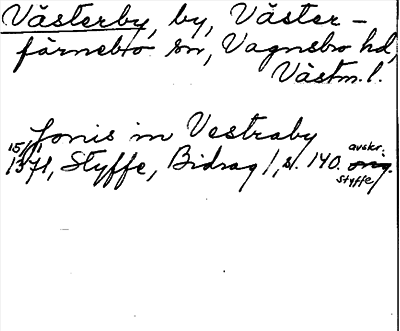 Västerby, by, Väster-
färnebro sn, Vagnsbro hd,
Västm. l.
Jonis in Vestraby
15/11 avskr.
1371, Styffe, Bidrag 1, s. 140. orig.
Styffe